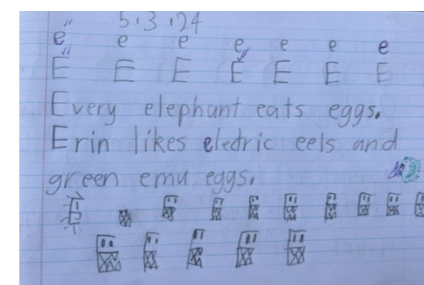 5.3.24
e e e e e e e
E E E E E E E
Every elephant eats eggs.
Erin likes eledric eels and
green emu eggs.